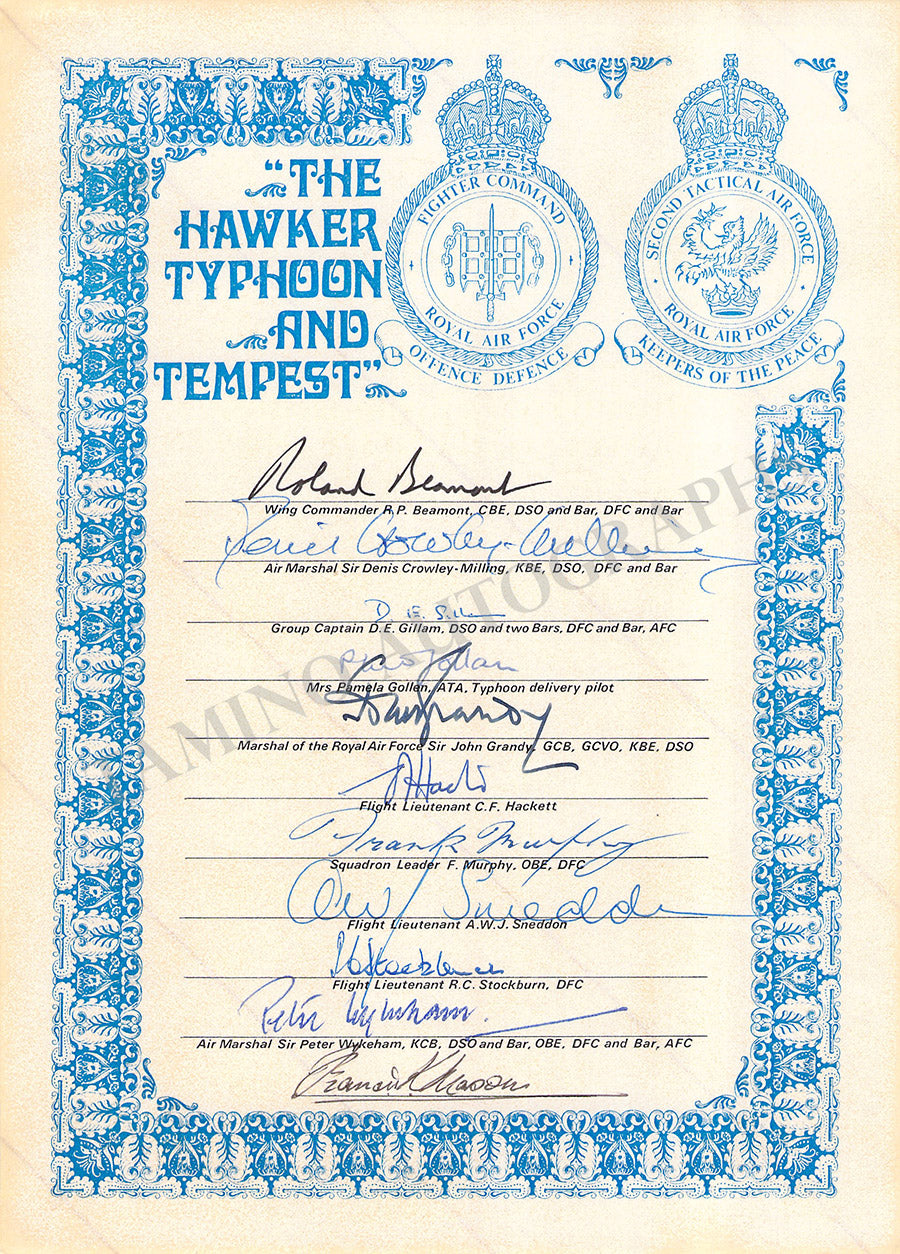 "THE
HAWKER
TYPHOON
AND
TEMPEST"
FIGHTER COMMAND
ROYAL AIR FORCE
OFFENCE DEFENCE
SECOND TACTICAL AIR FORCE
ROYAL AIR FORCE
KEEPERS OF THE PEACE
Roland Beamont
Wing Commander R.P. Beamont, CBE, DSO and Bar, DFC and Bar
Denis Crowley-Milling
Air Marshal Sir Denis Crowley-Milling, KBE, DSO, DFC and Bar
D.E. Gillam
Group Captain D.E. Gillam, DSO and two Bars, DFC and Bar, AFC
Mrs Pamela Gollen, ATA, Typhoon delivery pilot
John Grandy
Marshal of the Royal Air Force Sir John Grandy, GCB, GCVO, KBE, DSO
Flight Lieutenant C.F. Hackett
Frank Murphy
Squadron Leader F. Murphy, OBE, DFC
Flight Lieutenant A.W.J. Sneddon
Flight Lieutenant R.C. Stockburn, DFC
Peter Wykeham.
Air Marshal Sir Peter Wykeham, KCB, DSO and Bar, OBE, DFC and Bar, AFC
Francis K. Mason
TAMINO AUTOGRAPHS